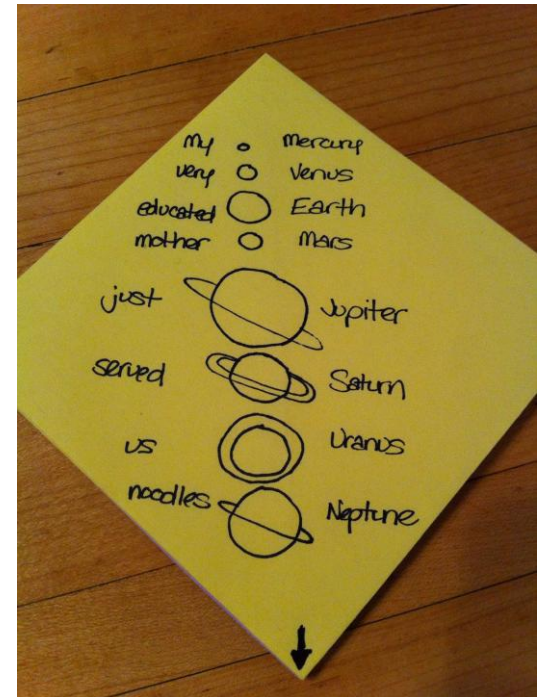 my mercury
very Venus
educated Earth
mother Mars
just Jupiter
served Saturn
us Uranus
noodles Neptune